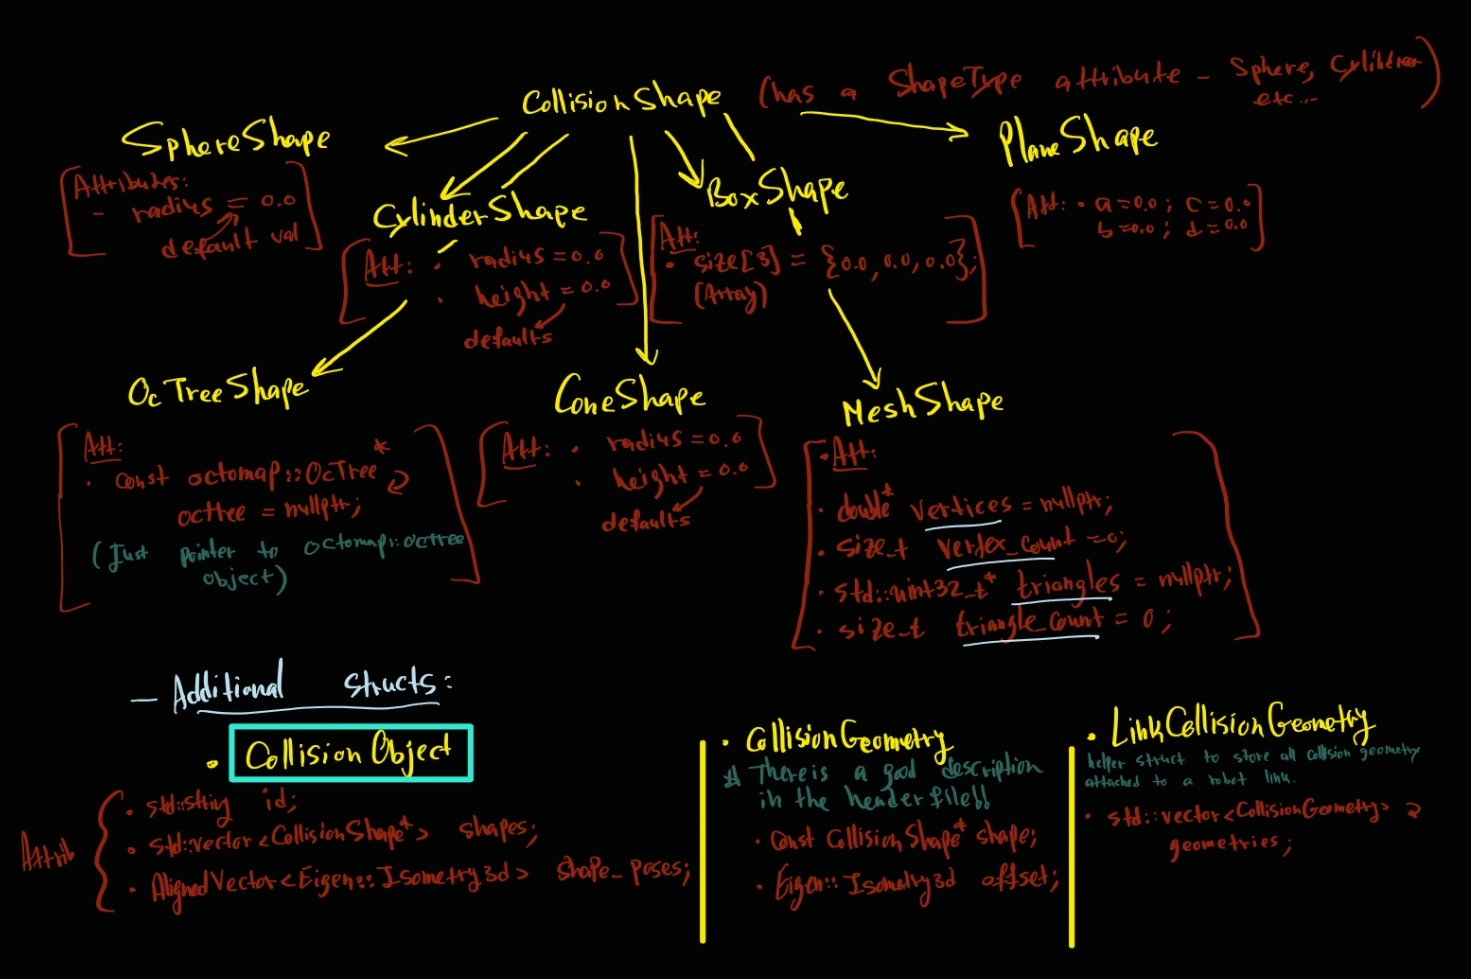 CollisionShape (has a ShapeType attribute - Sphere, Cylinder
etc...)
SphereShape
[Attributes:
- radius = 0.0
default val]
CylinderShape
[Att: • radius = 0.0
• height = 0.0]
defaults
BoxShape
[Att:
• size[3] = {0.0, 0.0, 0.0};
(Array)]
PlaneShape
[Att: • a=0.0; c=0.0
b=0.0; d=0.0]
OcTreeShape
[Att:
• const octomap::OcTree*
octree = nullptr;
(Just pointer to octomap::octree
object)]
ConeShape
[Att: • radius = 0.0
• height = 0.0]
defaults
MeshShape
[• Att:
• double* vertices = nullptr;
• size_t vertex_count = 0;
• std::uint32_t* triangles = nullptr;
• size_t triangle_count = 0;]
- Additional structs:
• CollisionObject
Attrib
{• std::string id;
• std::vector<CollisionShape*> shapes;
• AlignedVector<Eigen::Isometry3d> shape_poses;
• CollisionGeometry
* There is a good description
in the header file!!
• const CollisionShape* shape;
• Eigen::Isometry3d offset;
• LinkCollisionGeometry
helper struct to store all collision geometry
attached to a robot link.
• std::vector<CollisionGeometry>
geometries;